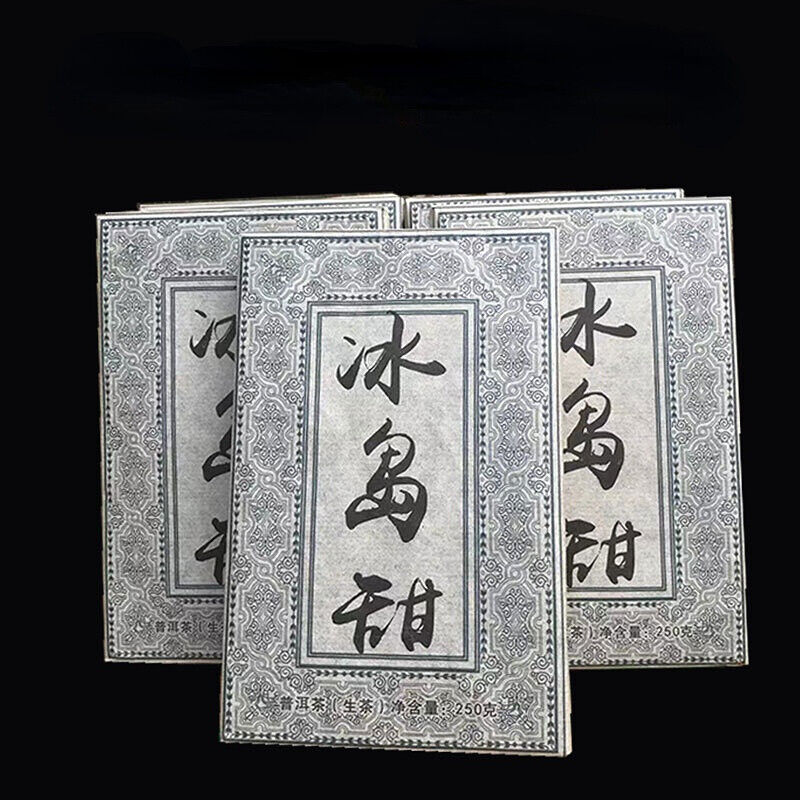 冰
島
甜
普洱茶（生茶）净含量：250克
冰
島
甜
普洱茶（生茶
冰
島
甜
茶）净含量：250克